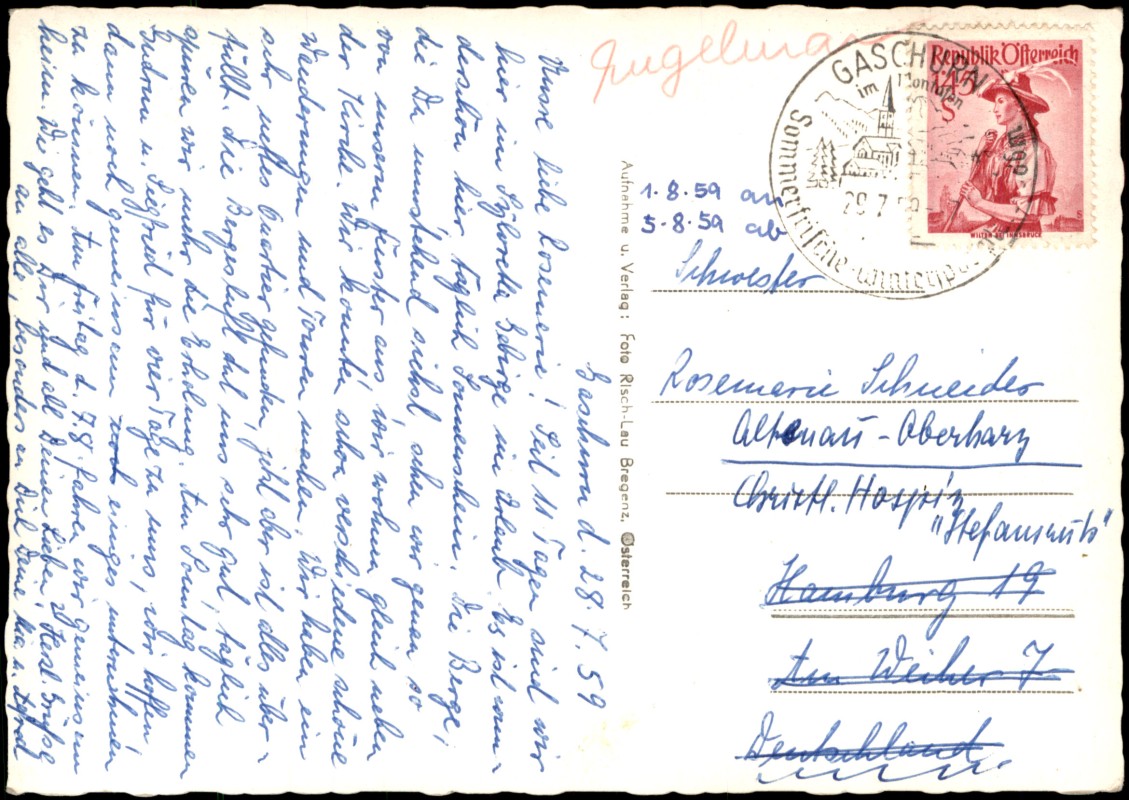 Gaschurn d. 28.7.59
Unsre liebe Rosemarie! Seit 11 Tagen sind wir
hier im Silvretta Gebirge in Urlaub. Es ist wun-
derschön hier täglich Sonnenschein. Die Berge,
die Du umstehend siehst sehen wir genau so
von unserm Fenster aus, wir wohnen gleich neben
der Kirche. Wir konnten schon verschiedene schöne
Wanderungen und Touren machen. Wir haben ein
sehr nettes Quartier gefunden, jetzt aber ist alles über-
füllt. Die Bergesluft tut uns sehr gut, täglich
spüren wir mehr die Erholung. Am Sonntag kommen
Gudrun u. Siegfried für vier Tage zu uns, wir hoffen
dann noch gemeinsam einiges unternehmen
zu können. Am Freitag d. 7.8. fahren wir gemeinsam
heim. Wie geht es Dir und all Deinen Lieben? Herzl. Grüße
an alle, besonders an Dich Deine u.
Aufnahme u. Verlag: Foto Risch-Lau Bregenz, Österreich
Engelmann
GASCHURN
im Montafon
29.7.59
Sommerfrische - Wintersport
Republik Österreich
1.45
S
WILTEN BEI INNSBRUCK
1.8.59 an
5.8.59 ab
Schwester
Rosemarie Schneider
Altenau-Oberharz
Christl. Hospiz
"Stefansruh"
Hamburg 19
Am Weiher 7
Deutschland